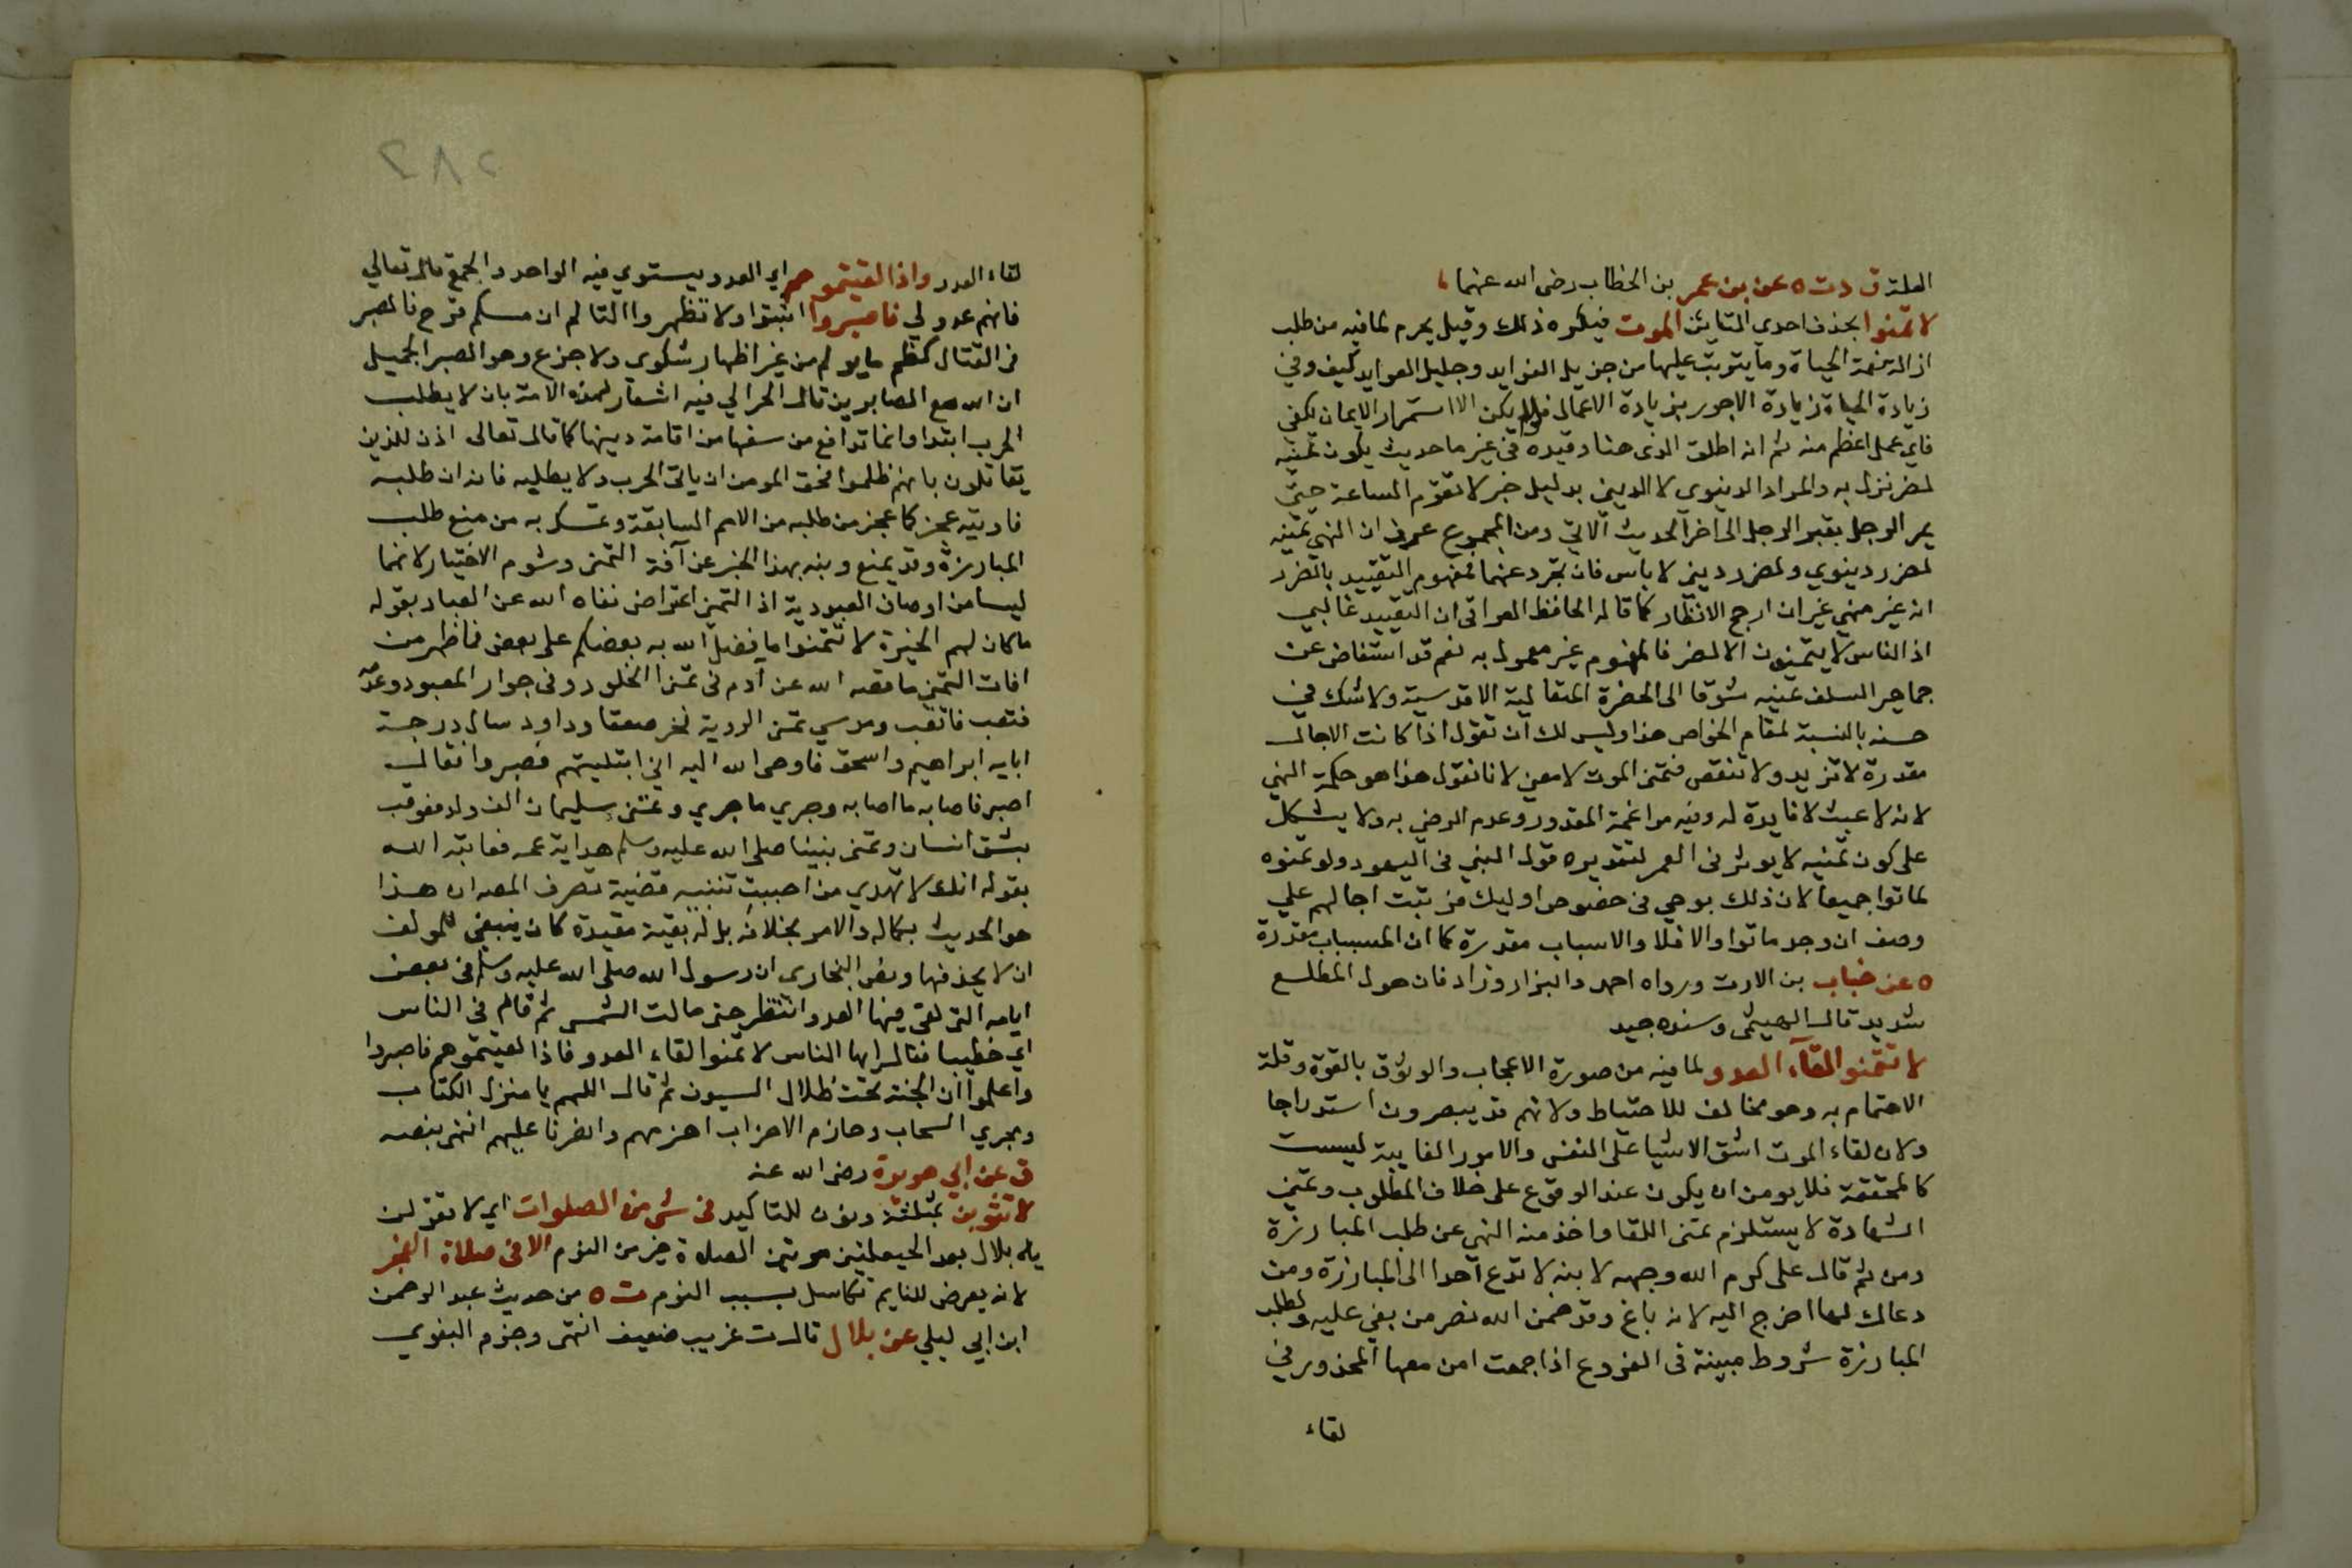 العلة ق د ت ه عن بن عمر بن الخطاب رضى الله عنهما
لا تمنوا بحذف احدي التايئن الموت فيكره ذلك وقيل يحرم لما فيه من طلب
ازالة نعمة الحياة وما يترتب عليها من جزيل الفوايد وجليل العوايد كيف وفي
زيادة الحياة زيادة الاجور بزيادة الاعمال فلو لم يكن الا استمرار الايمان لكفى
فاي عمل اعظم منه ثم انه اطلق الذى هنا وقيده في غير ما حديث بكون تمنيه
لضر نزل به والمراد الدينوى لا الديني بدليل خبر لا تقوم الساعة حتي
يمر الرجل بقبر الرجل الى اخر الحديث الاتي ومن المجموع عرف ان النهي تمنيه
لضرر دينوي ولضرر ديني لا باس فان تجرد عنهما فمفهوم التقييد بالضرر
انه غير منهي غير ان ارجح الانظار كما قاله الحافظ العراقى ان التقييد غالبي
اذ الناس لا يتمنون الا لضر فالمفهوم غير معمول به نعم قد استفاض عن
جماهر السلف تمنيه شوقا الى الحضرة المتعالية الاقدسية ولا شك في
حسنه بالنسبة لمقام الخواص هذا وليس لك ان تقول اذا كانت الاجال
مقدرة لا تزيد ولا تنقص فتمنى الموت لا معنى لانا نقول هذا هو حكمة النهي
لانه لا عبث لا فايدة له وفيه مراغمة المقدور وعدم الرضي به ولا يشكل
على كون تمنيه لا يوثر فى العمر لتقديره قول النبي فى اليهود ولو تمنوه
لماتوا جميعا لان ذلك بوحي فى خصوص اوليك فرتبت اجالهم علي
وصف ان وجد ماتوا والا فلا والاسباب مقدرة كما ان المسببات مقدرة
ه عن خباب بن الارت ورواه احمد والبزار وزاد فان هول المطلع
شديد قال الهيثمى وسنده جيد
لا تتمنوا لقآء العدو لما فيه من صورة الاعجاب والوثوق بالقوة وقلة
الاهتمام به وهو مخالف للاحتياط ولانهم قد يبصرون استدراجا
ولان لقاء الموت اشق الاشيا على النفس والامور الغايبة ليست
كالمحققة فلا يومن ان يكون عند الوقوع على خلاف المطلوب وتمني
الشهادة لا يستلزم تمنى اللقا واخذ منه النهى عن طلب المبارزة
ومن ثم قال على كرم الله وجهه لابنه لا تدع احدا الى المبارزة ومن
دعاك لها اخرج اليه لانه باغ وقد ضمن الله نصر من بغي عليه ولطلب
المبارزة شروط مبينة فى الفروع اذا جمعت امن معها المحذور في
لقاء
٢٨٢
لقاء العدو واذا لقيتموهم اي العدو يستوي فيه الواحد والجمع قال تعالي
فانهم عدو لي فاصبروا اثبتوا ولا تظهروا التالم ان مسكم قرح فالصبر
فى القتال كظم ما يولم من غير اظهار شكوى ولا جزع وهو الصبر الجميل
ان الله مع الصابرين قال الحرالي فيه اشعار لهذه الامة بان لا يطلب
الحرب ابتدا وانما تدافع من منعها من اقامة دينها كما قال تعالى اذن للذين
يقاتلون بانهم ظلموا فحق المومن ان ياتى الحرب ولا يطلبه فانه ان طلبه
فاوتيه عجز كما عجز من طلبه من الامم السابقة وتمسك به من منع طلب
المبارزة وقد يمنع ونبه بهذا الخبر عن آفة التمنى وشوم الاختيار لانهما
ليسا من اوصاف العبودية اذ التمني اعتراض نفاه الله عن العباد بقوله
ما كان لهم الخيرة لا تتمنوا ما فضل الله به بعضكم على بعض فما ظهر من
افات التمني ما قصه الله عن آدم فى تمنى الخلود وفى جوار المعبود وعدّه
فتعب فاتعب وموسي تمنى الروية فخر صعقا وداود سال درجة
ابايه ابراهيم واسحق فاوحى الله اليه اني ابتليتهم فصبروا فقال
اصبر فاصابه ما اصابه وجري ما جري وتمنى سليمان الف ولد فعوقب
بشق انسان وتمنى نبينا صلى الله عليه وسلم هداية عمه فعاتبه الله
بقوله انك لا تهدي من احببت تنبيه قضية تصرف المص ان هذا
هو الحديث بكماله والامر بخلافه بل له بقية مفيدة كان ينبغي للمولف
ان لا يحذفها ونص البخارى ان رسول الله صلى الله عليه وسلم فى بعض
ايامه التى لقى فيها العدو انتظر حتى مالت الشمس ثم قام فى الناس
اي خطيبا فقال ايها الناس لا تمنوا لقاء العدو فاذا لقيتموهم فاصبروا
واعلموا ان الجنة تحت ظلال السيوف ثم قال اللهم يا منزل الكتاب
ومجري السحاب وهازم الاحزاب اهزمهم وانصرنا عليهم انتهى بنصه
ق عن ابي هريرة رضى الله عنه
لا تثوبن بمثلثة ونون للتاكيد فى شى من الصلوات اي لا تقولن
يا بلال بعد الحيعلتين مرتين الصلاة خير من النوم الا فى صلاة الفجر
لانه يعرض للنايم تكاسل بسبب النوم ت ه من حديث عبد الرحمن
ابن ابي ليلي عن بلال قال ت غريب ضعيف انتهى وجزم البغوي